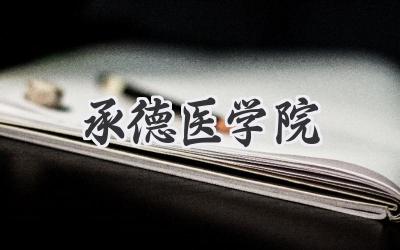 承德医学院